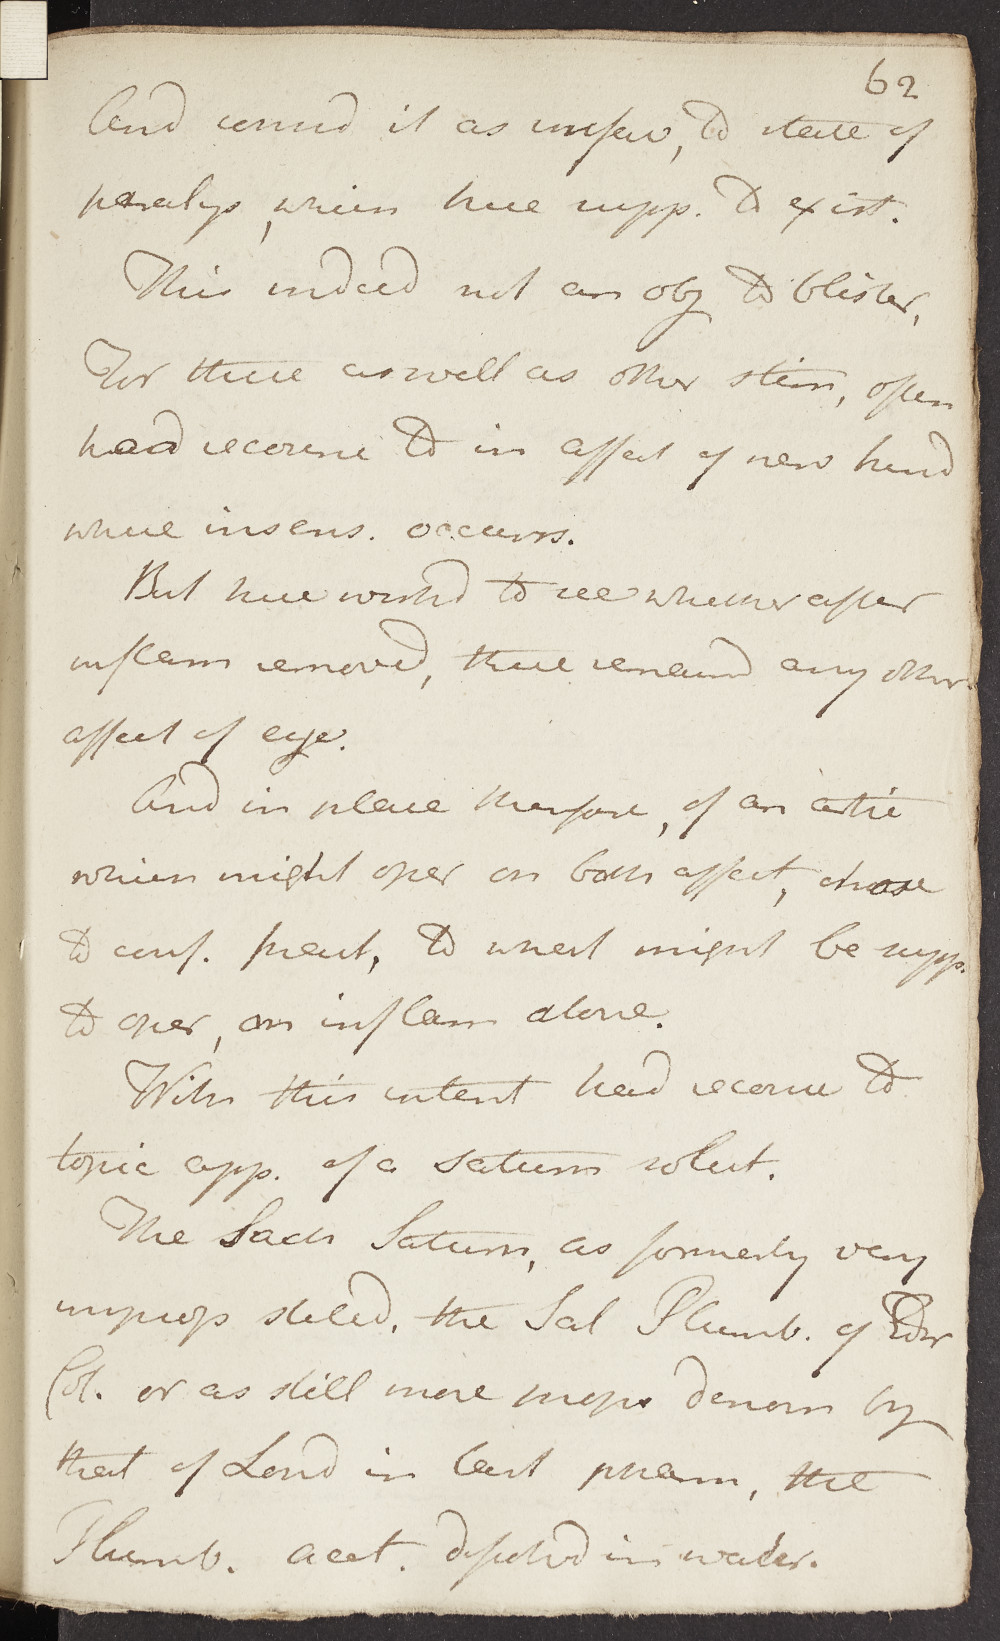 62
And consid it as unfav, to state of
paralys, which here supp. to exist.
This indeed not an obj to blister,
For these as well as other stim, often
had recourse to in affect of nerv kind
where insens. occurrs.
But here wishd to see whether after
inflam removed, there remaind any other
affect of eye.
And in place therefore, of an article
which might oper on both affect, chose
to conf. pract, to what might be supp.
to oper, on inflam alone.
With this intent had recourse to
topic app. of a saturn solut.
The Sacch Saturn, as formerly very
improp stiled, the Sal Plumb. of Edr
Col. or as still more prop denom by
that of Lond in last pharm, the
Plumb. acet. dissolvd in water.